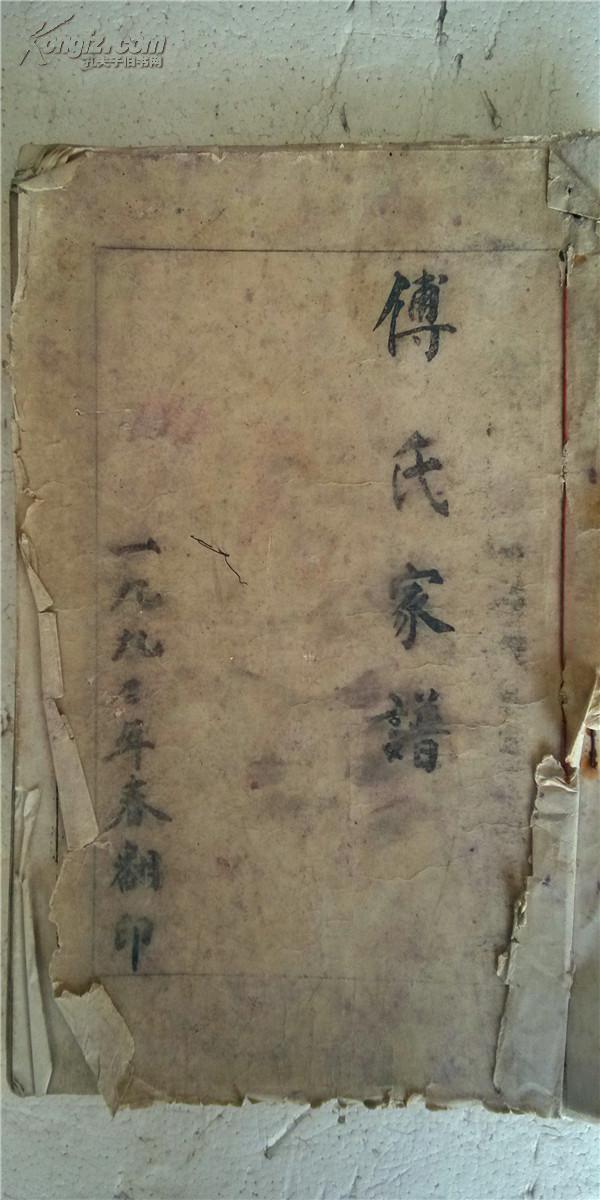 Kongfz.com
孔夫子旧书网
傅氏家譜
一九九三年春翻印